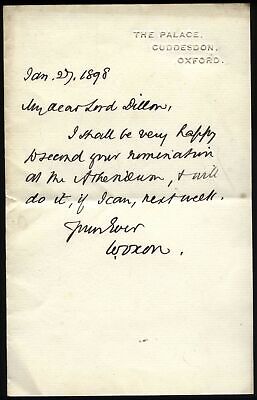 THE PALACE,
CUDDESDON,
OXFORD.
Jan. 27, 1898
My dear Lord Dillon,
I shall be very happy
to second your nomination
at the Athenaeum, & will
do it, if I can, next week.
Yours Ever
W. Oxon.